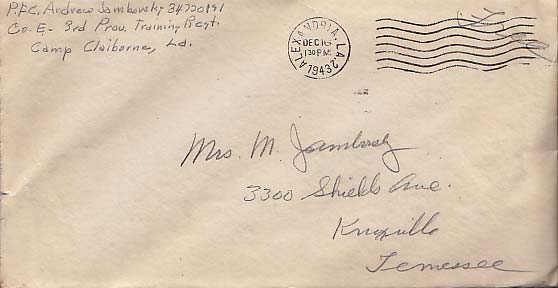 P.F.C. Andrew Jambovsky 34720191
Co. E- 3rd Prov. Training Regt.
Camp Claiborne, La.
ALEXANDRIA, LA.
DEC 16
1 30 PM
1943
2
Free
Mrs. M. Jambovsky
3300 Shields Ave.
Knoxville
Tennessee